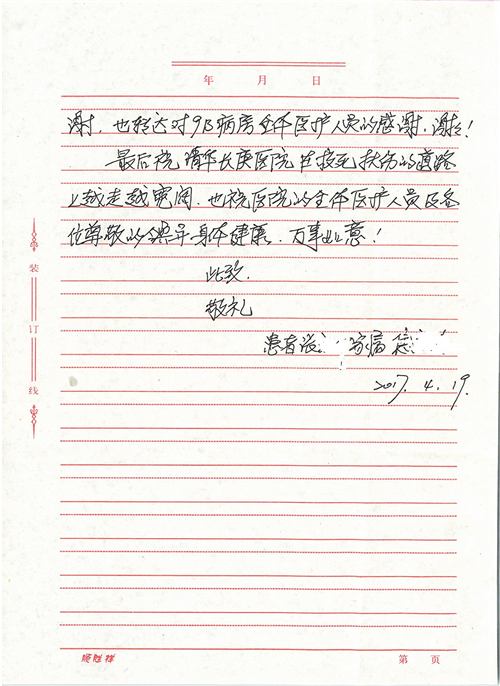 年 月 日
谢，也转达对9B病房全体医护人员的感谢，谢谢！
最后祝清华长庚医院在救死扶伤的道路
上越走越宽阔，也祝医院的全体医护人员及各
位尊敬的领导身体健康，万事如意！
此致
敬礼
患者 家属
2017.4.19.
装
订
线
第 页